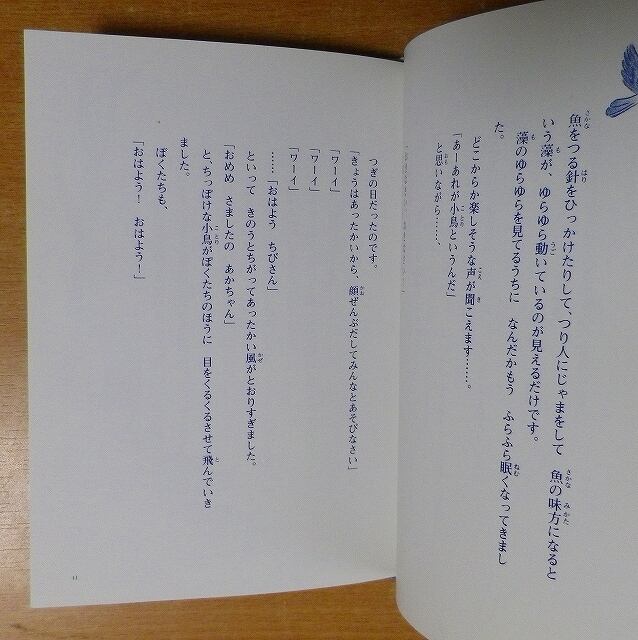 魚をつる針をひっかけたりして、つり人にじゃまをして　魚の味方になると
いう藻が、ゆらゆら動いているのが見えるだけです。
藻のゆらゆらを見てるうちに　なんだかもう　ふらふら眠くなってきまし
た。
どこからか楽しそうな声が聞こえます……。
「あーあれが小鳥というんだ」
と思いながら……、
つぎの日だったのです。
「きょうはあったかいから、顔ぜんぶだしてみんなとあそびなさい」
「ワーイ」
「ワーイ」
「ワーイ」
……「おはよう　ちびさん」
といって　きのうとちがってあったかい風がとおりすぎました。
「おめめ　さましたの　あかちゃん」
と、ちっぽけな小鳥がぼくたちのほうに　目をくるくるさせて飛んでいき
ました。
ぼくたちも、
「おはよう！　おはよう！」
41